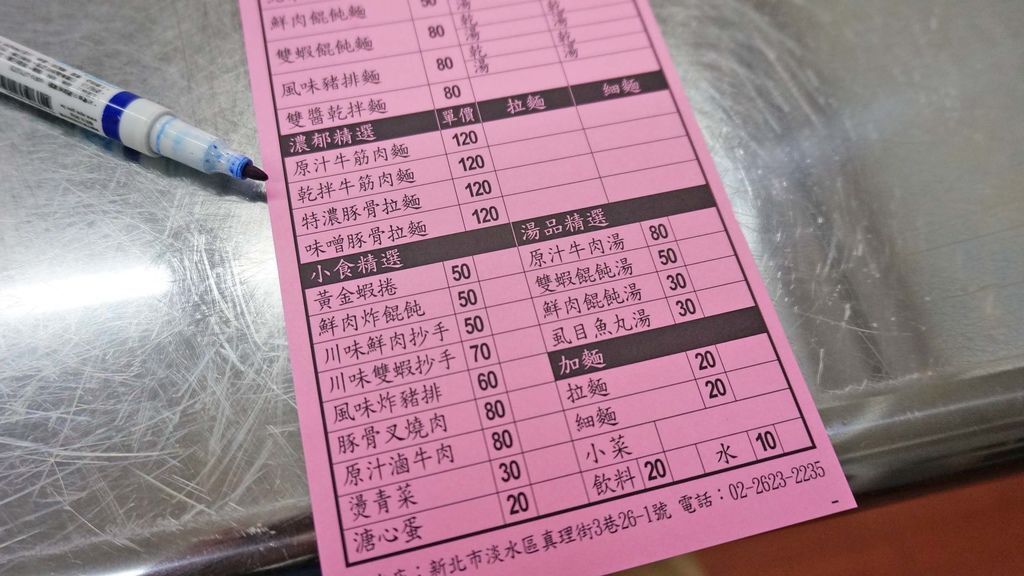 鮮肉餛飩麵 50 湯 乾
雙蝦餛飩麵 80 乾 湯 乾 湯
風味豬排麵 80 乾 湯 乾 湯
雙醬乾拌麵 80
濃郁精選 單價 拉麵 細麵
原汁牛筋肉麵 120
乾拌牛筋肉麵 120
特濃豚骨拉麵 120
味噌豚骨拉麵 120
小食精選 湯品精選
黃金蝦捲 50 原汁牛肉湯 80
鮮肉炸餛飩 50 雙蝦餛飩湯 50
川味鮮肉抄手 50 鮮肉餛飩湯 30
川味雙蝦抄手 70 虱目魚丸湯 30
風味炸豬排 60 加麵
豚骨叉燒肉 80 拉麵 20
原汁滷牛肉 80 細麵 20
燙青菜 30 小菜
溏心蛋 20 飲料 20 水 10
新北市淡水區真理街3巷26-1號 電話:02-2623-2235